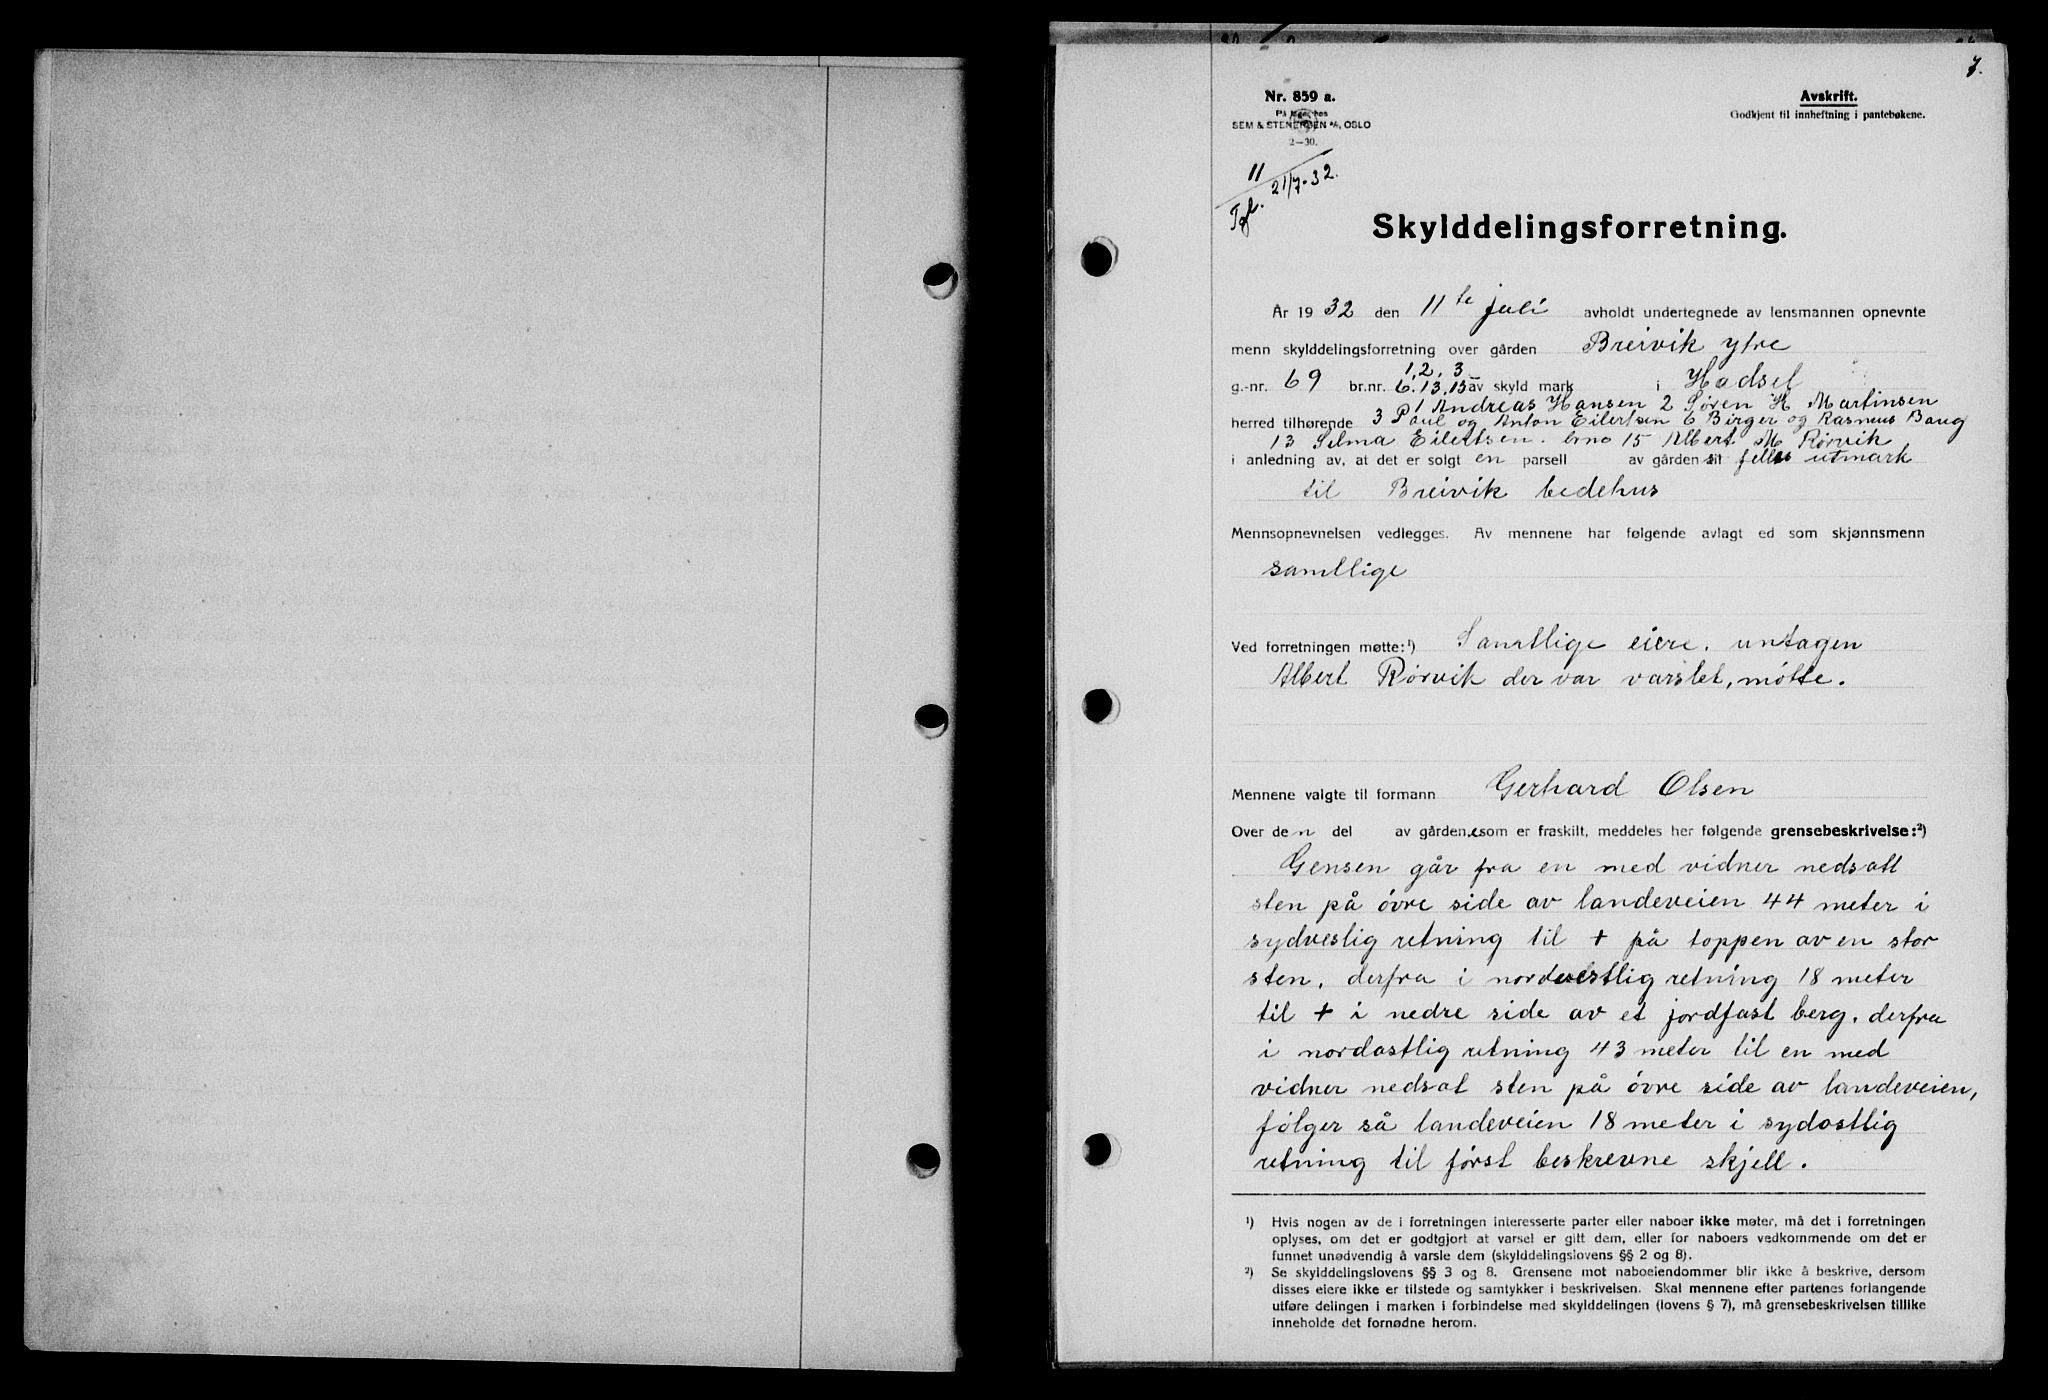 7.
Nr. 859 a.
På lager hos
SEM & STENERSEN A/S, OSLO
2—30.
Avskrift.
Godkjent til innheftning i pantebøkene.
11
Tgl. 21/7-32.
Skylddelingsforretning.
År 1932 den 11te juli avholdt undertegnede av lensmannen opnevnte
menn skylddelingsforretning over gården Breivik ytre
1, 2, 3
g.-nr. 69 br.nr. 6. 13, 15 av skyld mark i Hadsel
1 Andreas Hansen 2 Søren H Martinsen
herred tilhørende 3 Paul og Anton Eilertsen 6 Birger og Rasmus Baug
13 Selma Eilertsen. brno 15 Albert M Rørvik
i anledning av, at det er solgt en parsell av gårdens felles utmark
til Breivik bedehus
Mennsopnevnelsen vedlegges. Av mennene har følgende avlagt ed som skjønnsmenn
samtlige
Ved forretningen møtte:¹) Samtlige eiere. untagen
Albert Rørvik der var varslet, møtte.
Mennene valgte til formann Gerhard Olsen
Over den del av gården som er fraskilt, meddeles her følgende grensebeskrivelse:²)
Gensen går fra en med vidner nedsatt
sten på øvre side av landeveien 44 meter i
sydvestlig retning til + på toppen av en stor
sten, derfra i nordvestlig retning 18 meter
til + i nedre side av et jordfast berg. derfra
i nordostlig retning 43 meter til en med
vidner nedsat sten på øvre side av landeveien,
følger så landeveien 18 meter i sydostlig
retning til først beskrevne skjell.
¹) Hvis nogen av de i forretningen interesserte parter eller naboer ikke møter, må det i forretningen
oplyses, om det er godtgjort at varsel er gitt dem, eller for naboers vedkommende om det er
funnet unødvendig å varsle dem (skylddelingslovens §§ 2 og 8).
²) Se skylddelingslovens §§ 3 og 8. Grensene mot naboeiendommer blir ikke å beskrive, dersom
disses eiere ikke er tilstede og samtykker i beskrivelsen. Skal mennene efter partenes forlangende
utføre delingen i marken i forbindelse med skylddelingen (lovens § 7), må grensebeskrivelsen tillike
inneholde det fornødne herom.